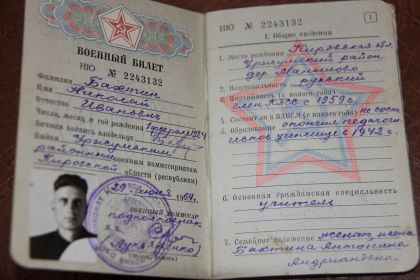 ВОЕННЫЙ БИЛЕТ
НЮ № 2243132
Фамилия Бахтин
Имя Николай
Отчество Иванович
Число, месяц и год рождения 1924
Личная подпись владельца
Выдан Уржумским
районным военным комиссариатом
Кировской области (республики)
20 июня 1964 г.
военный комиссар
подполковник
НЮ № 2243132
1
I. Общие сведения
1. Место рождения Кировская обл.
Уржумский район
дер.
2. Национальность русский
3. Партийность (с какого года)
член КПСС с 1959 г.
4. Состоит ли в ВЛКСМ (с какого года) не сост.
5. Образование окончил педагоги-
ческое училище в 1942 г.
6. Основная гражданская специальность
учитель
7. Семейное положение женат, жена
Бахтина Антонина
Андриановна